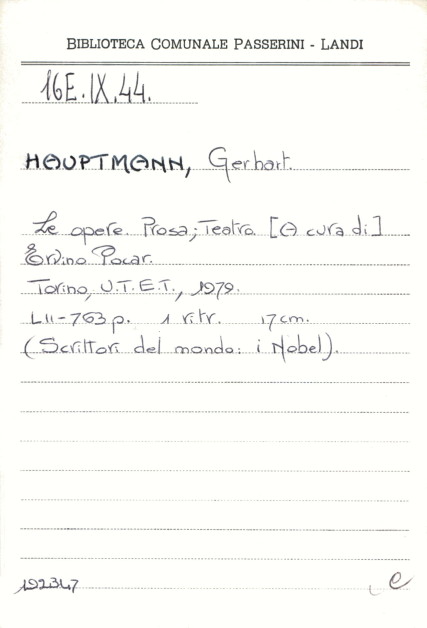 BIBLIOTECA COMUNALE PASSERINI - LANDI
16E.IX.44.
HAUPTMANN, Gerhart.
Le opere. Prosa; Teatro. [A cura di]
Ervino Pocar.
Torino, U.T.E.T., 1979.
LII-763 p. 1 ritr. 17 cm.
(Scrittori del mondo: i Nobel).
192347 e